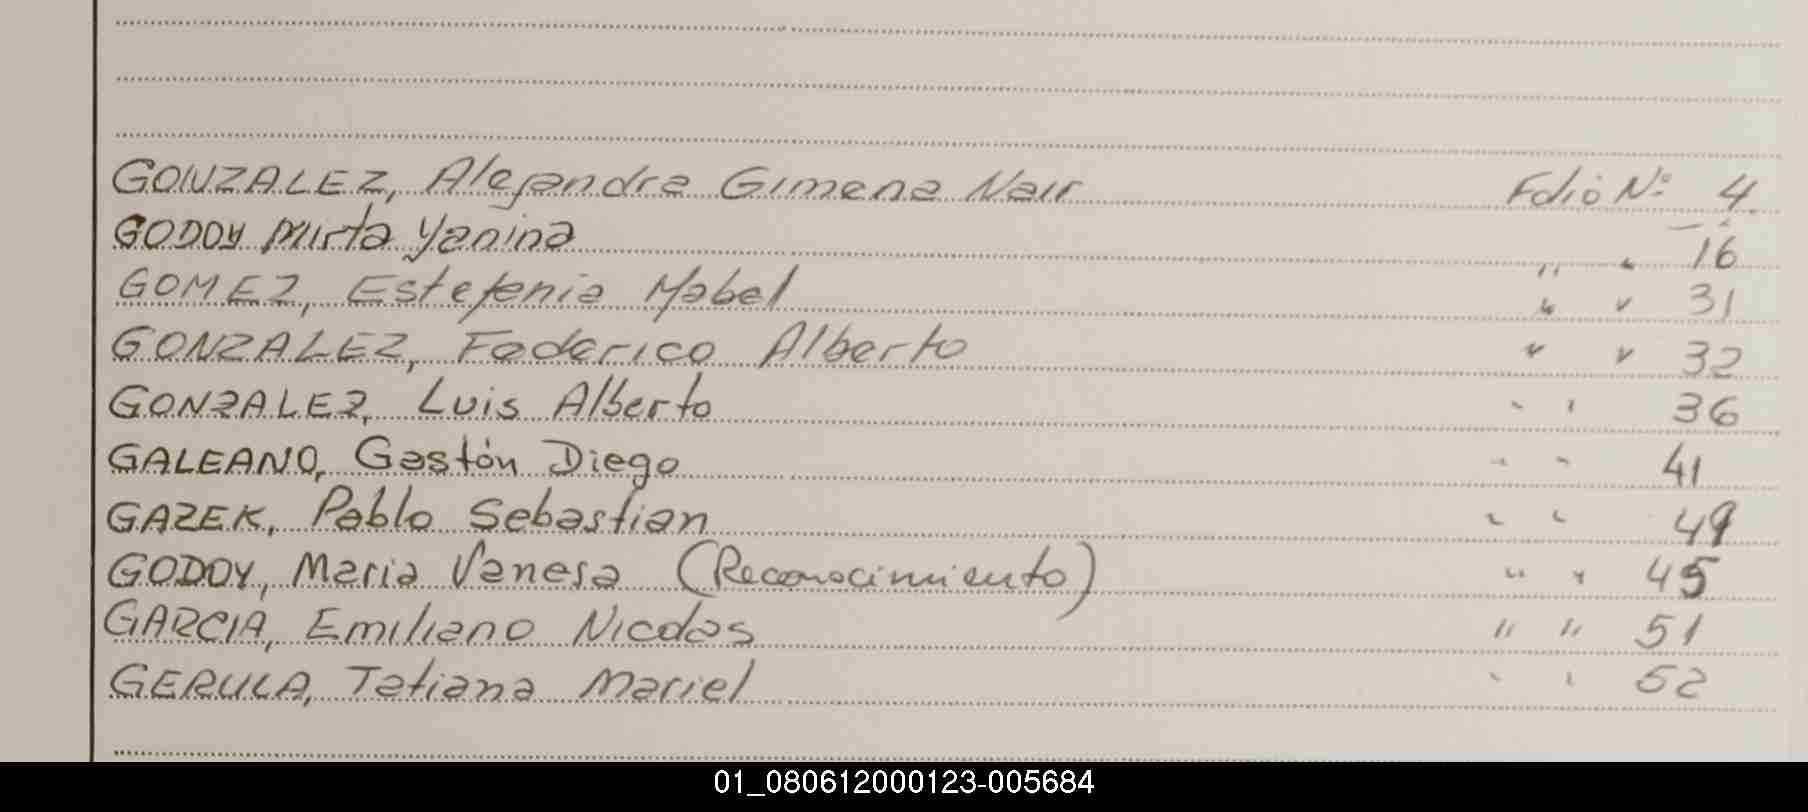 GONZALEZ, Alejandra Gimena Nair Folio Nº 4
GODOY Mirta Yanina " " 16
GOMEZ, Estefania Mabel " " 31
GONZALEZ, Federico Alberto " " 32
GONZALEZ, Luis Alberto " " 36
GALEANO, Gastón Diego " " 41
GAZEK, Pablo Sebastian " " 49
GODOY, Maria Vanesa (Reconocimiento) " " 45
GARCIA, Emiliano Nicolas " " 51
GERULA, Tatiana Mariel " " 52
01_080612000123-005684